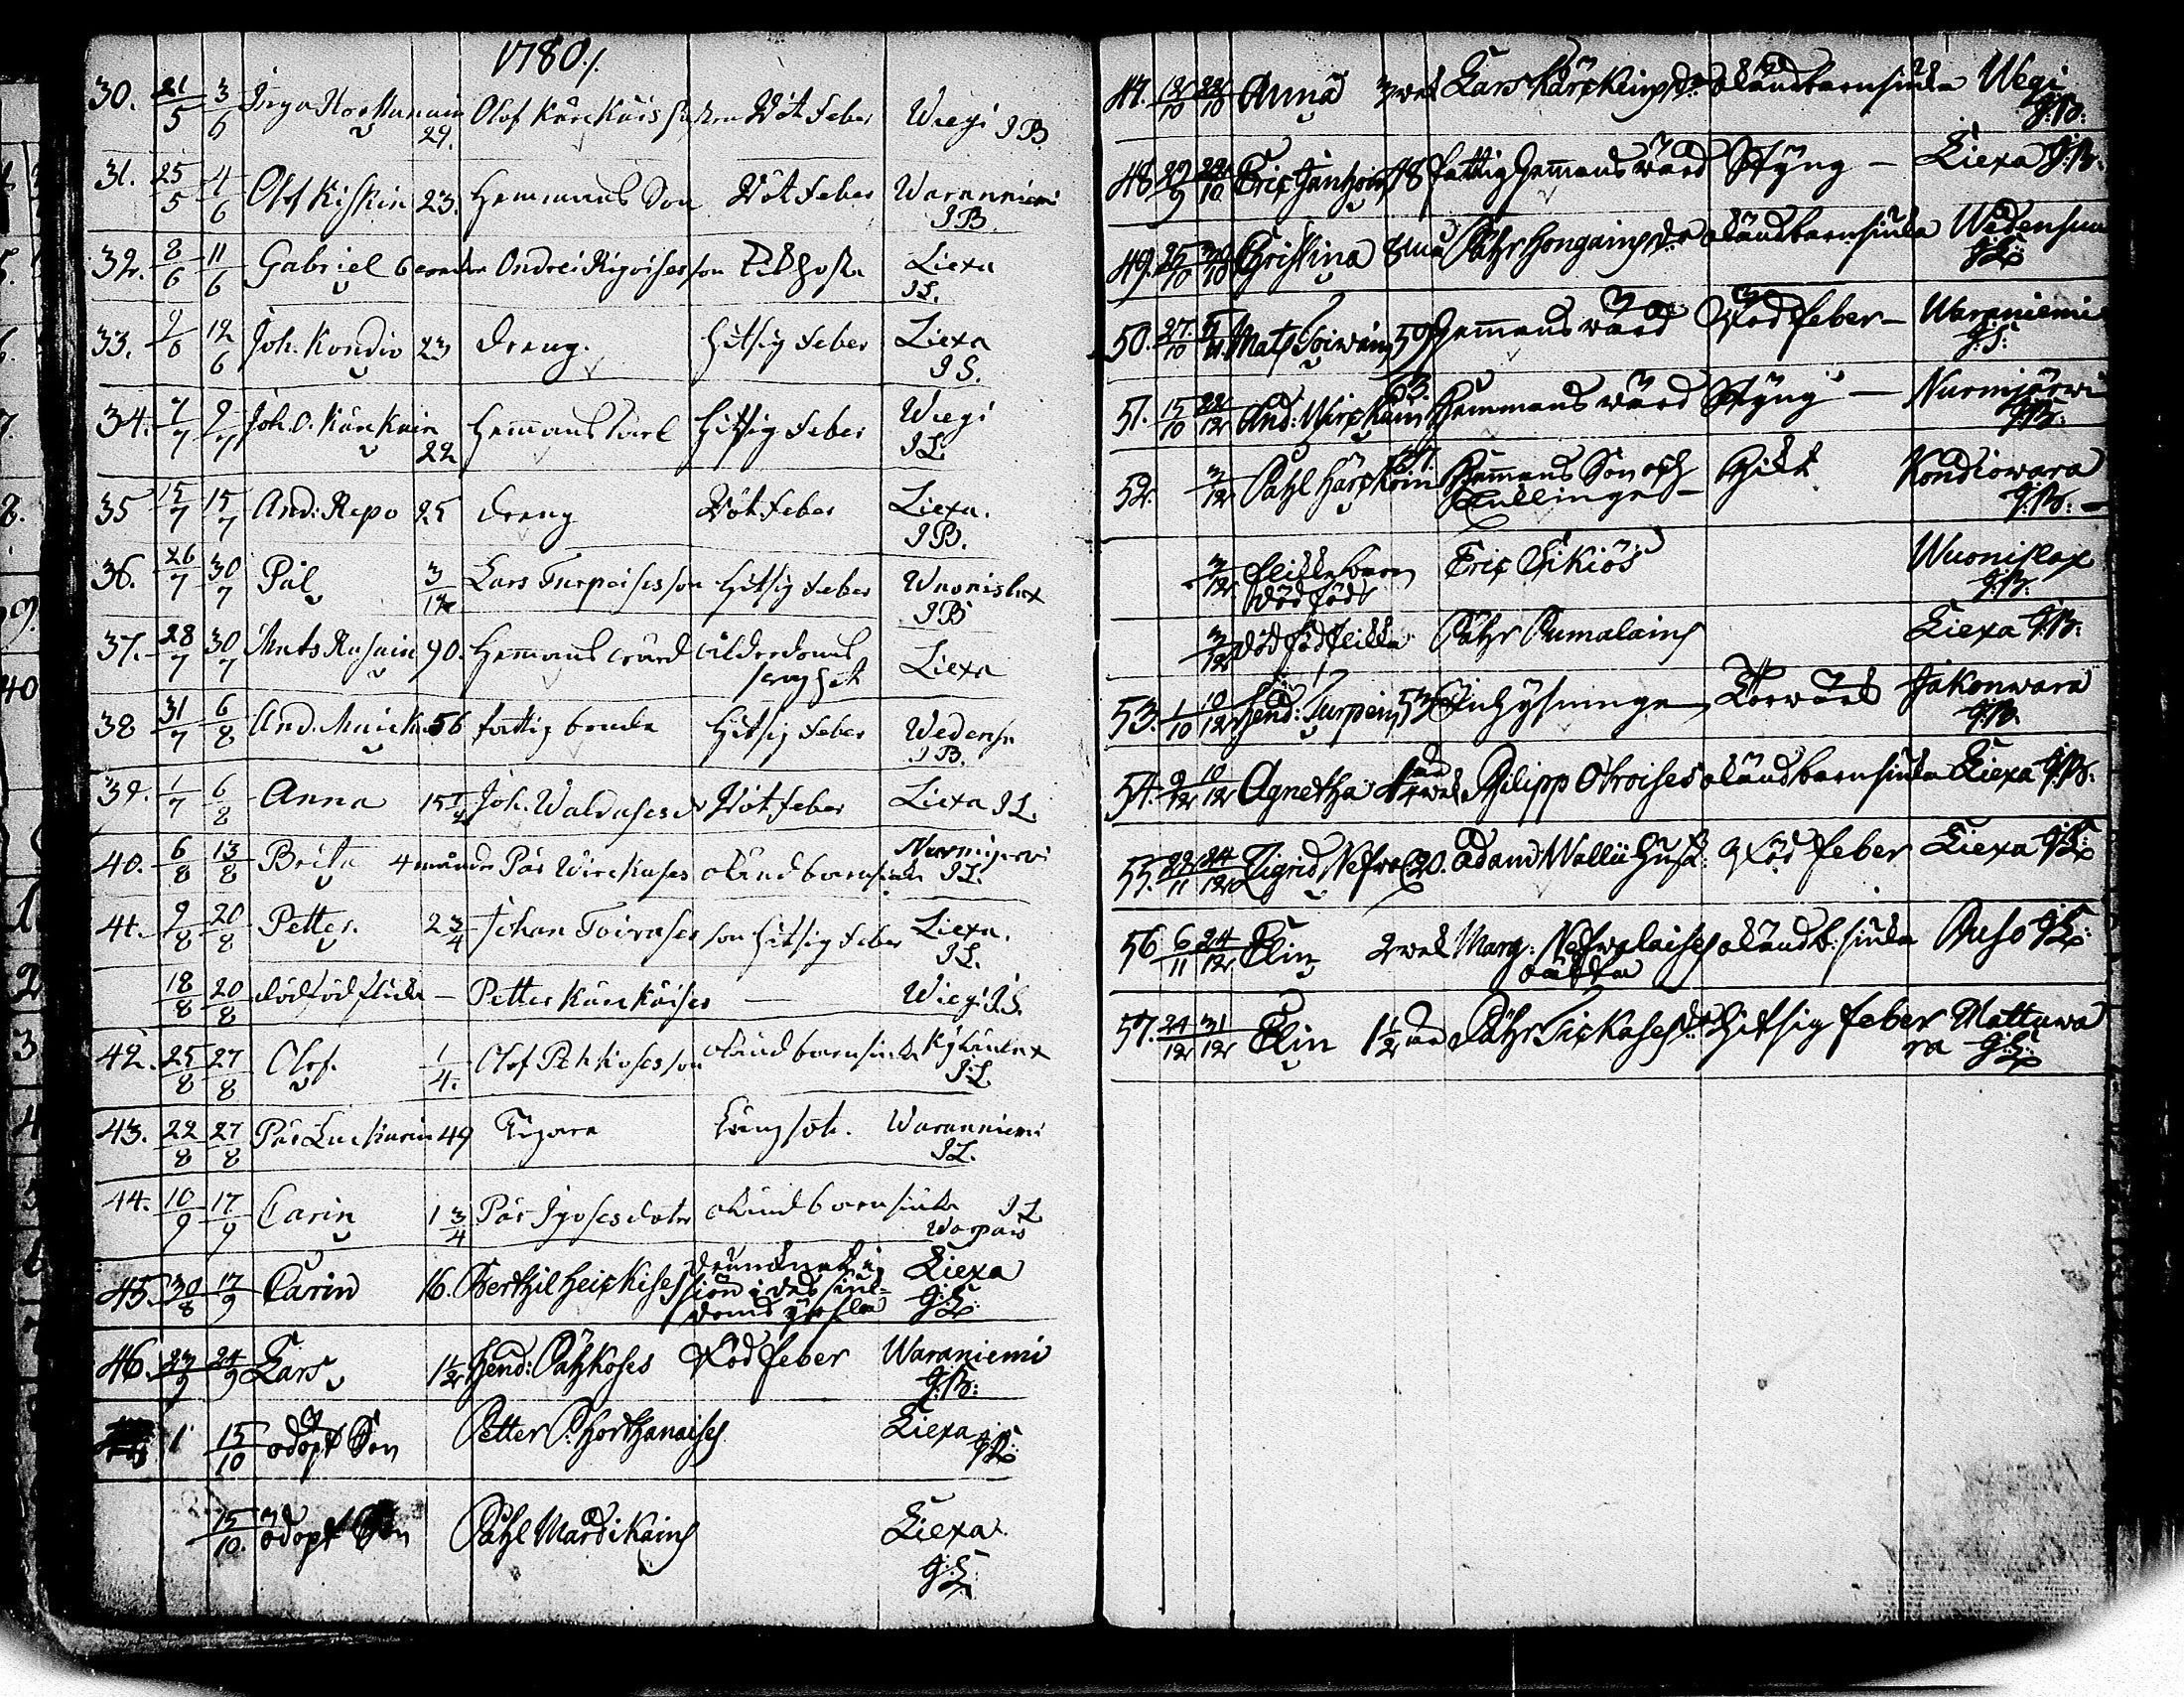 1780.
30. 21/5 3/6 Inga Hortunain 29. Olof Kärckäis hustru Röt feber Wiegi J B.
31. 25/5 4/6 Olof Kiskin 23. Hemmans Son Röt feber Waranniemi J B.
32. 8/6 11/6 Gabriel 6 weckor Ondrei Rigoises son Kikhosta Liexa J L.
33. 9/6 12/6 Joh. Kondio 23 dreng. Hitsig feber Liexa J L.
34. 7/7 9/7 Joh. O. Kärckäin 22 Hemmans karl Hitsig feber Wiegi J L.
35 15/7 15/7 And: Repo 25 dreng Röt feber Liexa. J B.
36. 26/7 30/7 Pål 3/12 Lars Turpeises son Hitsig feber Wuonislax J B
37. 28/7 30/7 Mats Rusain 90. Hemmans wärd ålderdoms swaghet Liexa
38 31/7 6/8 And. Muick 56 fattig bonde Hitsig feber Wedensu J B.
39. 1/7 6/8 Anna 15 1/2 Joh. Waldases dr Röt feber Liexa J L.
40. 6/8 13/8 Brita 4 månder Pär Wirckases okänd barnsiuka Nurmijerwi J L.
41. 9/8 20/8 Petter. 2 3/4 Johan Toivases son Hitsig feber Liexa. J L.
18/8 20/8 dödföd flicka — Petter Kärckäises — Wiegi J L.
42. 25/8 27/8 Olof. 1/4. Olof Pehkoses son okänd barnsiuka Kylänlax J L
43. 22/8 27/8 Pär Luckarin 49 Tigare lungsot. Waranniemi J L.
44. 10/9 17/9 Carin 1 3/4 Pär Igoses doter okänd barnsiuka J L Warpais
45. 30/8 17/9 Carin 16. Berthil Heickises drunknat i siön i des siukdoms yrsla Liexa J: L:
46. 23/9 24/9 Lars 1 1/2 Hend: Pähkoses Röd feber Waraniemi J: B:
1 15/10 odöpt Son Petter P: Horthanaises Liexa J: L:
15/10. odöpt Son Påhl Mardikains Liexa. J: L:
47. 12/10 22/10 Anna 3 wek Lars Kärckeins dr okänd barnsiuka Wegi J: B:
48 29/9 22/10 Eric Hanhoin 48 fattig Hemmans wärd Styng — Liexa J: B:
49. 25/10 Christina Pähr Hongains dr okänd barnsiuka Wedensuu J: L:
50. 27/10 Mats Toiwain 59 Hemmans wärd Röd feber — Waraniemi J: L:
51. 15/10 And: Wirckain 63. Hemmans wärd Styng — Nurmijärwi J: B:
52. 3/12 Påhl Härckoin 67. Hemmans Son och Tullinge — Gikt Kondiowara J: B: —
3/12 flickebarn dödfödt Eric Eikiös Wuonislax J: B:
3/12 dödföd flicka Pähr Rumalains Liexa J: B:
53. 1/10 10/12 Hend: Turpein 53 Inhysninge Torwärk Jakonwara J: B
54. 9/12 10/12 Agnetha Philipp Otroises okänd barnsiuka Liexa J: B:
55. 22/11 24/12 Sigrid Nefwal 20. Adam Wallii Hust: Röd feber Liexa J: L:
56 6/11 24/12 Elin 2 wek Marg: Nefwalaises oäkta okänd b: siuka Ruso J: L:
57. 24/12 31/12 Elin 1 1/2 år Pähr Tickases dr Hitsig feber Mattuwara J: L: